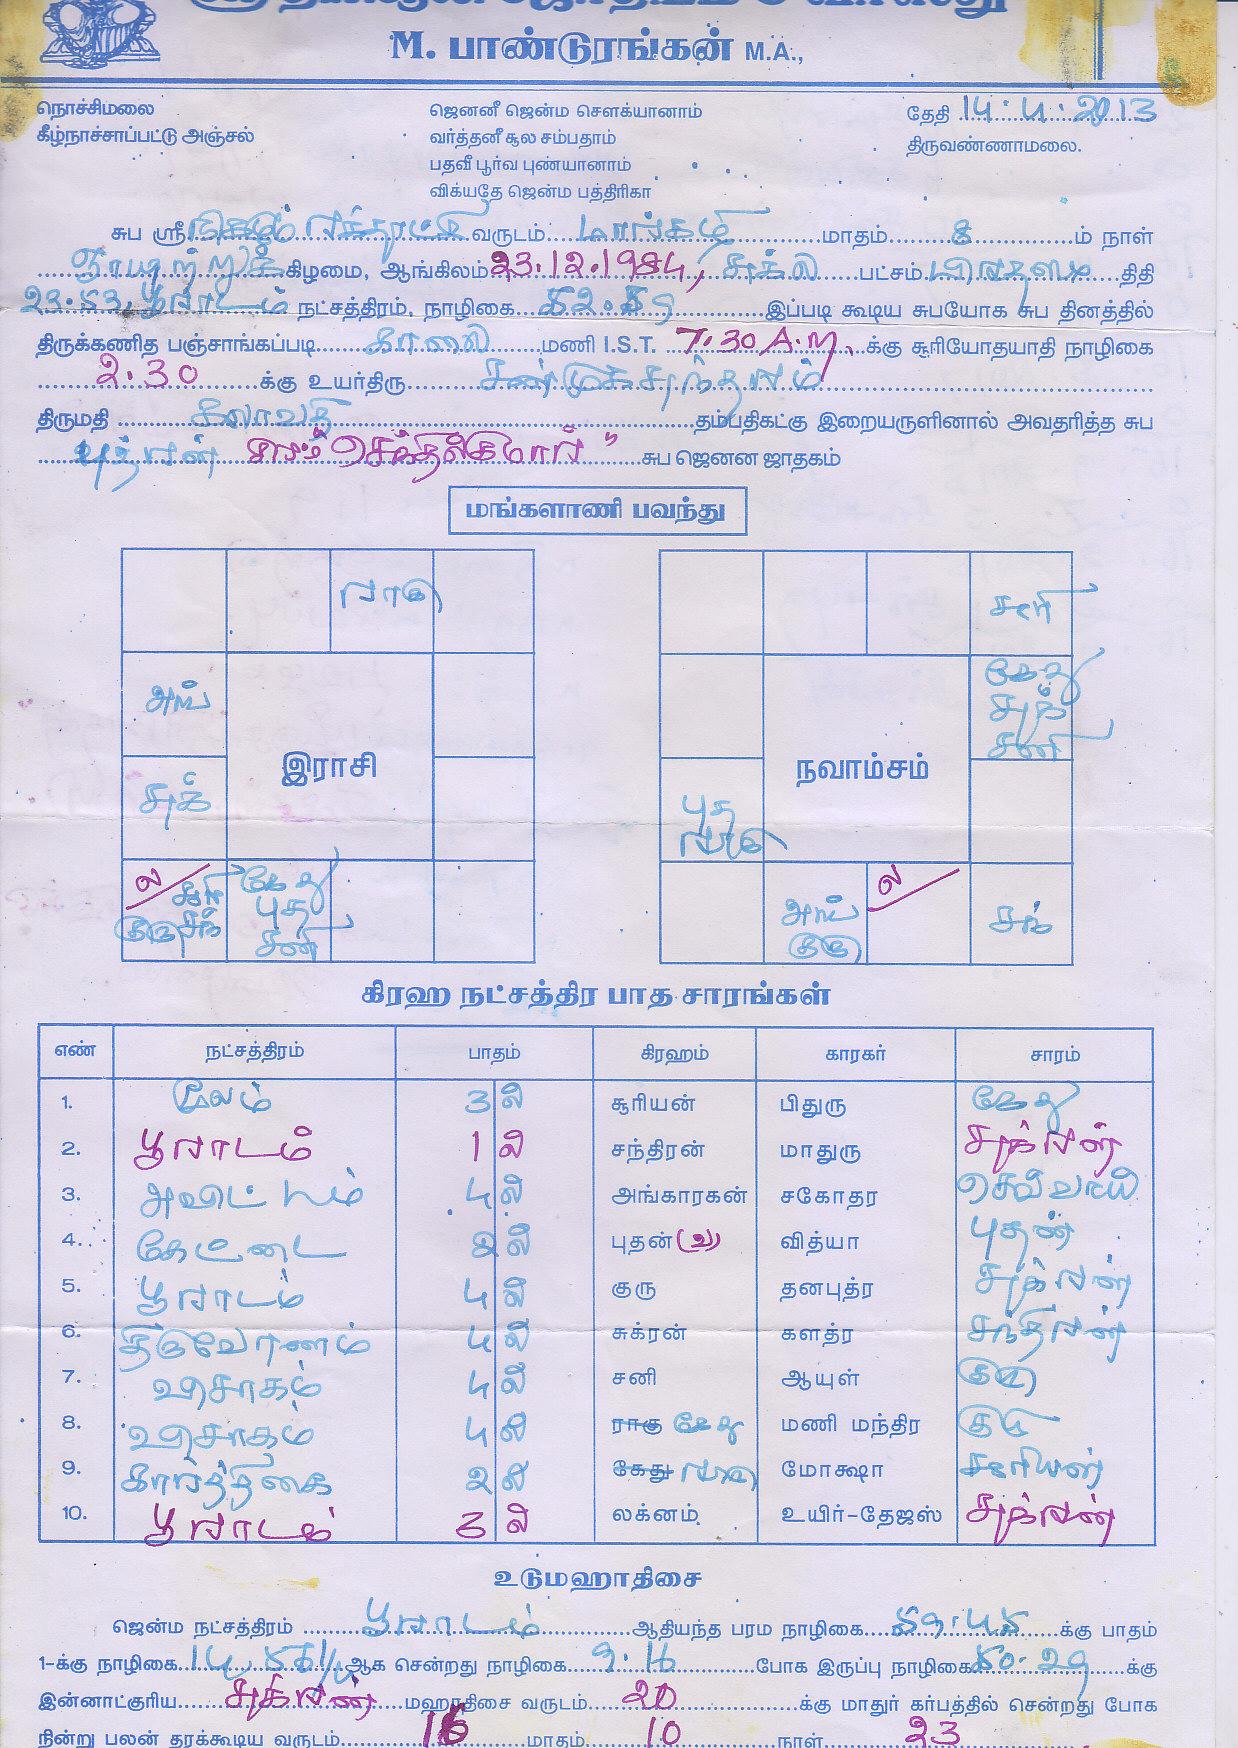 M. பாண்டுரங்கன் M.A.,
நொச்சிமலை
கீழ்நாச்சாப்பட்டு அஞ்சல்
ஜெனனீ ஜென்ம சௌக்யானாம்
வர்த்தனீ சூல சம்பதாம்
பதவீ பூர்வ புண்யானாம்
விக்யதே ஜென்ம பத்திரிகா
தேதி 14.4.2013
திருவண்ணாமலை.
சுப ஸ்ரீ வருடம் மார்கழி மாதம் 8 ம் நாள்
ஞாயிற்றுக் கிழமை, ஆங்கிலம் 23.12.1984, சுக்ல பட்சம் திதி
23.53 பூராடம் நட்சத்திரம், நாழிகை 52.59 இப்படி கூடிய சுபயோக சுப தினத்தில்
திருக்கணித பஞ்சாங்கப்படி காலை மணி I.S.T. 7.30 A.M. க்கு சூரியோதயாதி நாழிகை
2.30 க்கு உயர்திரு சண்முகசுந்தரம்
திருமதி லீலாவதி தம்பதிகட்கு இறையருளினால் அவதரித்த சுப
புத்ரன் செந்தில்குமார்" சுப ஜெனன ஜாதகம்
மங்களாணி பவந்து
ராகு
அங்
சுக்
இராசி
ல சூரி
குரு சந்
கேது
புத
சனி
சூரி
கேது
சுக்
சனி
நவாம்சம்
புத
ராகு
அங்
குரு
ல
சந்
கிரஹ நட்சத்திர பாத சாரங்கள்
எண் நட்சத்திரம் பாதம் கிரஹம் காரகர் சாரம்
1. மூலம் 3 ல் சூரியன் பிதுரு கேது
2. பூராடம் 1 ல் சந்திரன் மாதுரு சுக்ரன்
3. அவிட்டம் 4 ல் அங்காரகன் சகோதர செவ்வாய்
4. கேட்டை 2 ல் புதன் (வ) வித்யா புதன்
5. பூராடம் 4 ல் குரு தனபுத்ர சுக்ரன்
6. திருவோணம் 4 ல் சுக்ரன் களத்ர சந்திரன்
7. விசாகம் 4 ல் சனி ஆயுள் குரு
8. விசாகம் 4 ல் ராகு கேது மணி மந்திர குரு
9. கார்த்திகை 2 ல் கேது ராகு மோக்ஷா சூரியன்
10. பூராடம் 3 ல் லக்னம் உயிர்-தேஜஸ் சுக்ரன்
உடுமஹாதிசை
ஜென்ம நட்சத்திரம் பூராடம் ஆதியந்த பரம நாழிகை 59.45 க்கு பாதம்
1-க்கு நாழிகை 14.56¼ ஆக சென்றது நாழிகை 9.16 போக இருப்பு நாழிகை 50.29 க்கு
இன்னாட்குரிய சுக்ரன் மஹாதிசை வருடம் 20 க்கு மாதுர் கர்பத்தில் சென்றது போக
நின்று பலன் தரக்கூடிய வருடம் 16 மாதம் 10 நாள் 23